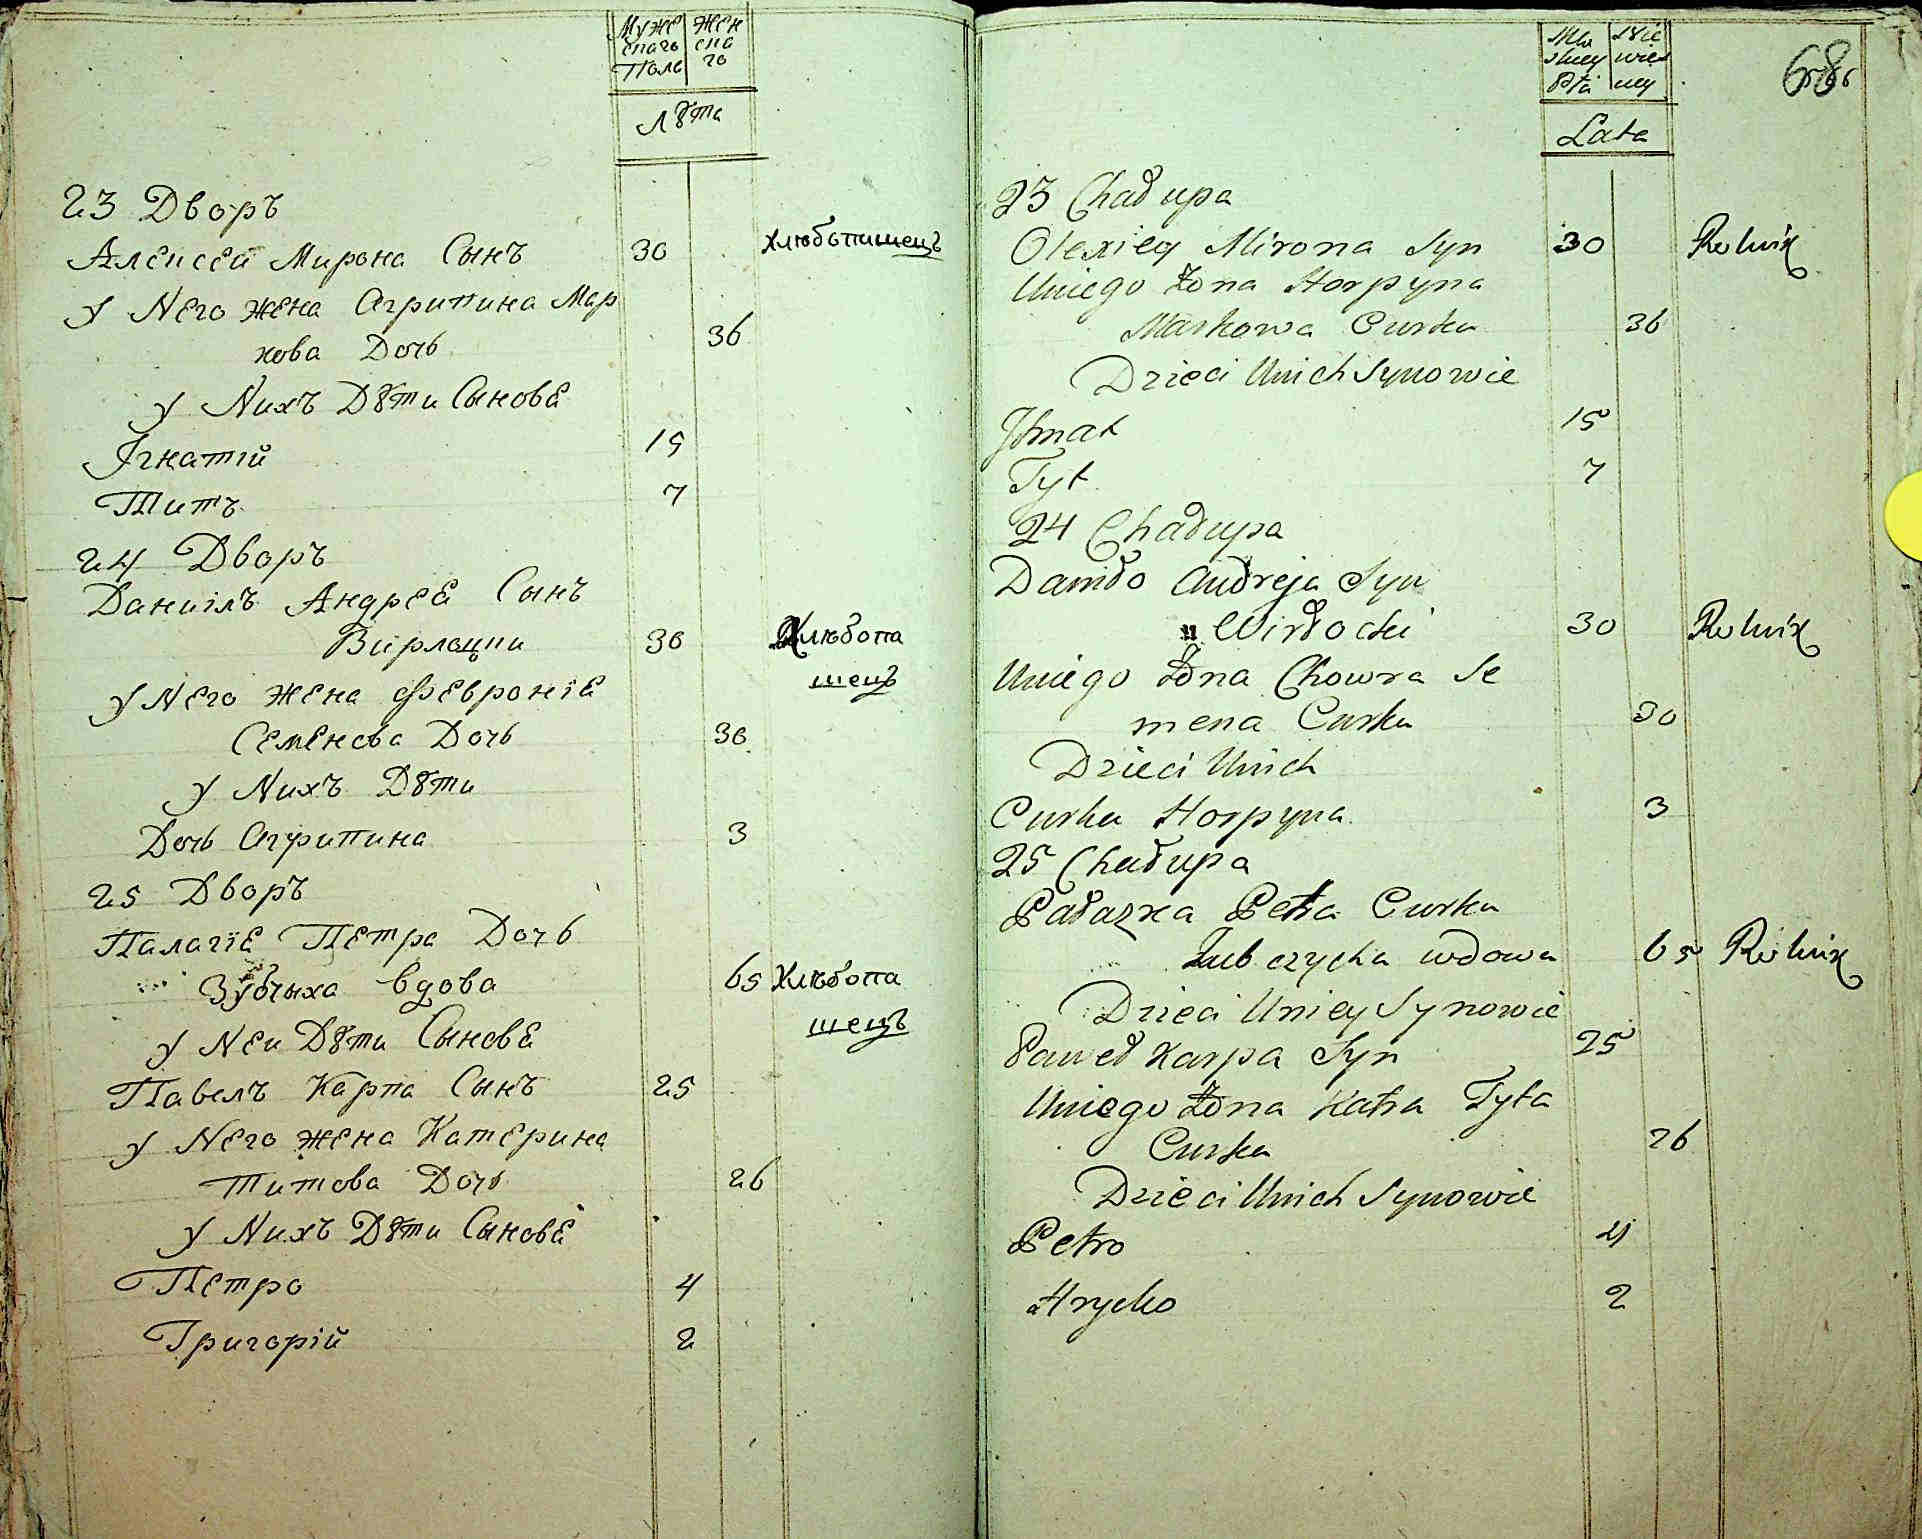 Муже Жен
скаго ска
Полъ го
Лѣта
23 Дворъ
Алексей Мирона Сынъ 30 Хлѣбопашецъ
У Него жена Агрипина Мар
кова Дочь 36
У Нихъ Дѣти Сынове
Ігнатій 15
Титъ 7
24 Дворъ
Даниілъ Андрея Сынъ
Вирлоцки 30 Хлѣбопа
шецъ
У Него жена Февронія
Семенова Дочь 30
У Нихъ Дѣти
Дочь Агрипина 3
25 Дворъ
Палагія Петра Дочь
Зубчыха вдова 65 Хлѣбопа
шецъ
У Неи Дѣти Сынове
Павелъ Карпа Сынъ 25
У Него жена Катерина
Титова Дочь 26
У Нихъ Дѣти Сынове
Петро 4
Григорій 2
68
Lata
23 Chałupa
Olexiey Mirona Syn 30 Rolnik
Uniego Żona Horpyna
Markowa Curka 36
Dzieci Unich Synowie
Ihnat 15
Tyt 7
24 Chałupa
Daniło Andreja Syn
Wirłocki 30 Rolnik
Uniego Żona Chowra Se
mena Curka 30
Dzieci Unich
Curka Horpyna 3
25 Chałupa
Pałazka Petra Curka
Zubczycha wdowa 65 Rolnik
Dzieci Uniey Synowie
Paweł Karpa Syn 25
Uniego Żona Katra Tyta
Curka 26
Dzieci Unich Synowie
Petro 4
Hrycko 2